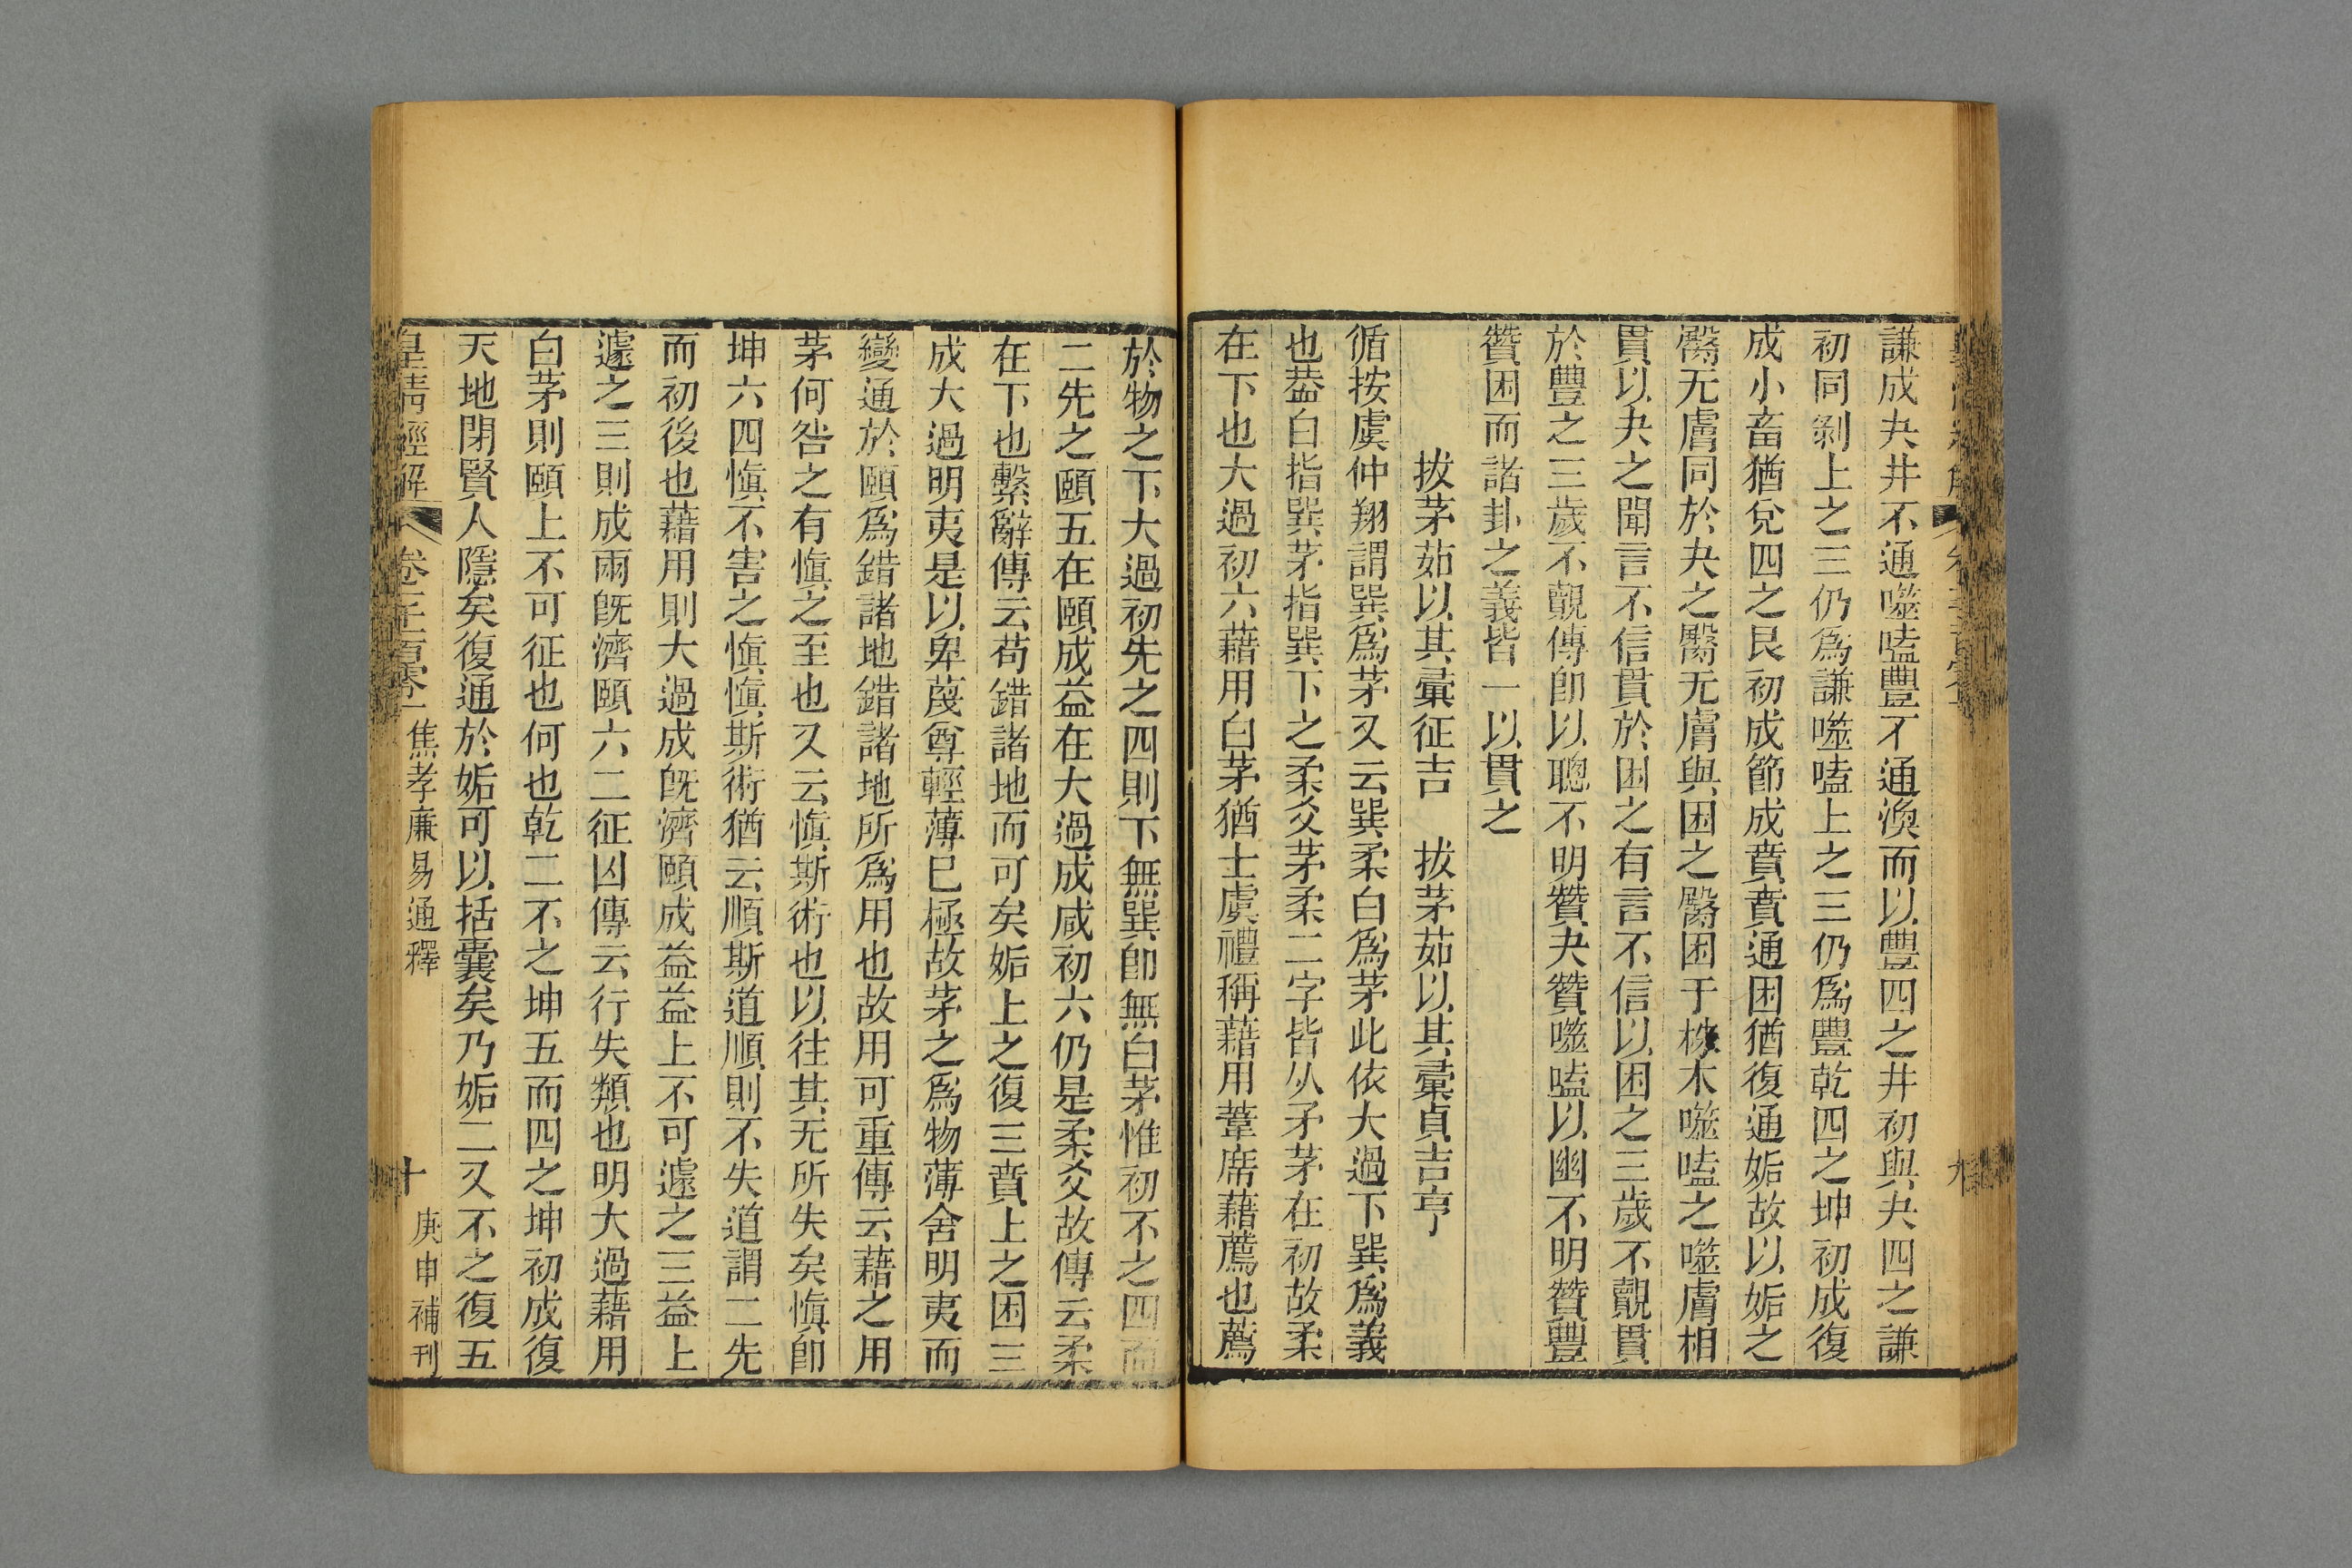 謙成夬井不通噬嗑豐不通渙而以豐四之井初與夬四之謙
初同剝上之三仍爲謙噬嗑上之三仍爲豐乾四之坤初成復
成小畜猶兌四之艮初成節成賁賁通困猶復通姤故以姤之
臀无膚同於夬之臀无膚與困之臀困于株木噬嗑之噬膚相
貫以夬之聞言不信貫於困之有言不信以困之三歲不覿貫
於豐之三歲不覿傳卽以聰不明贊夬贊噬嗑以幽不明贊豐
贊困而諸卦之義皆一以貫之
拔茅茹以其彙征吉　拔茅茹以其彙貞吉亨
循按虞仲翔謂巽爲茅又云巽柔白爲茅此依大過下巽爲義
也葢白指巽茅指巽下之柔爻茅柔二字皆从矛茅在初故柔
在下也大過初六藉用白茅猶士虞禮稱藉用葦席藉薦也薦
於物之下大過初先之四則下無巽卽無白茅惟初不之四而
二先之頤五在頤成益在大過成咸初六仍是柔爻故傳云柔
在下也繫辭傳云苟錯諸地而可矣姤上之復三賁上之困三
成大過明夷是以卑蔑尊輕薄已極故茅之爲物薄舍明夷而
變通於頤爲錯諸地錯諸地所爲用也故用可重傳云藉之用
茅何咎之有愼之至也又云愼斯術也以往其无所失矣愼卽
坤六四愼不害之愼愼斯術猶云順斯道順則不失道謂二先
而初後也藉用則大過成旣濟頤成益益上不可遽之三益上
遽之三則成兩旣濟頤六二征凶傳云行失類也明大過藉用
白茅則頤上不可征也何也乾二不之坤五而四之坤初成復
天地閉賢人隱矣復通於姤可以括囊矣乃姤二又不之復五
皇淸經解　卷一千一百零一　焦孝廉易通釋　十　庚申補刊